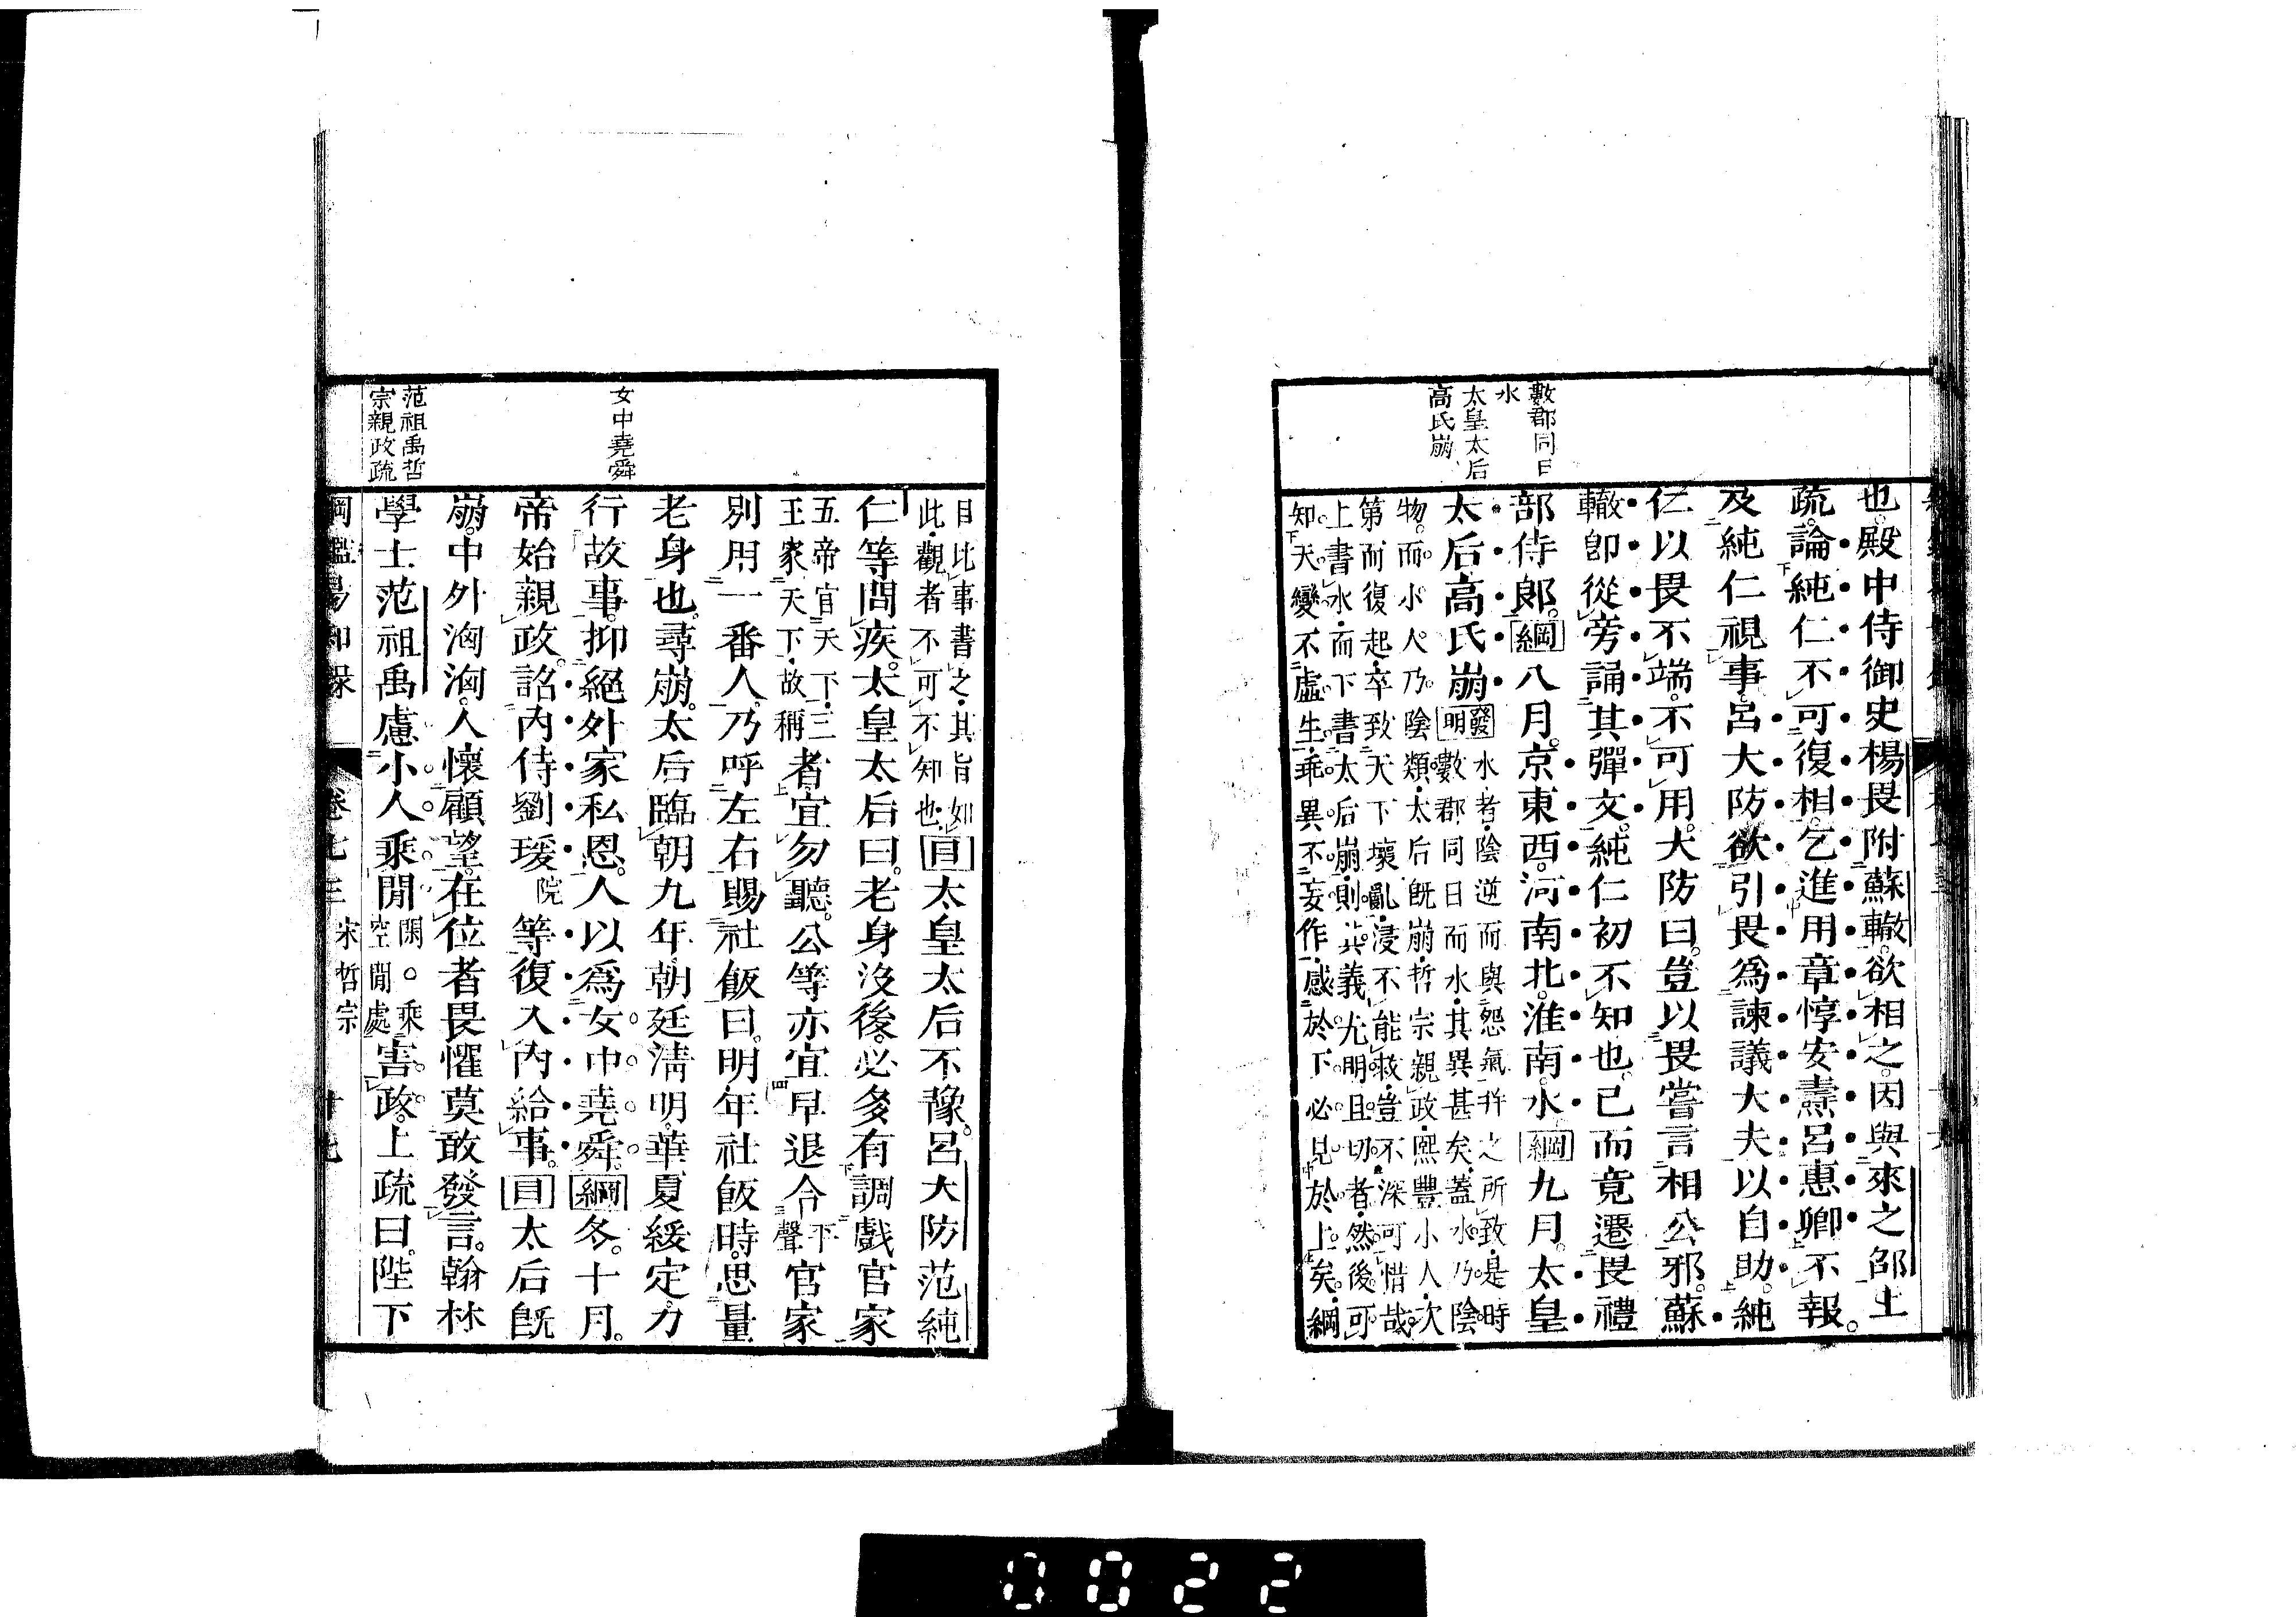 數郡同日
水
太皇太后
高氏崩
也。殿中侍御史楊畏附蘇轍。欲相之。因與來之邵上
疏。論純仁不可復相。乞進用章惇安燾呂惠卿。不報。
及純仁視事。呂大防欲引畏爲諫議大夫以自助。純
仁以畏不端。不可用。大防曰。豈以畏嘗言相公邪。蘇
轍卽從旁誦其彈文。純仁初不知也。已而竟遷畏禮
部侍郎。綱八月。京東西。河南北。淮南。水綱九月。太皇
太后高氏崩發明水者陰逆而與怨氣幷之所致是時
數郡同日而水其異甚矣蓋水乃陰
物。而小人乃陰類太后旣崩哲宗親政熙豐小人次
第而復起卒致天下壞亂浸不能救豈不深可惜哉
上書水而下書太后崩則其義尤明且切者然後可
知天變不虛生乖異不妄作感於下必見於上矣綱
女中堯舜
范祖禹哲
宗親政疏
目比事書之其旨如
此觀者不可不知也目太皇太后不豫。呂大防范純
仁等問疾。太皇太后曰。老身沒後。必多有調戲官家
五帝官天下三
王家天下故稱者宜勿聽。公等亦宜早退令下聲官家
別用一番人。乃呼左右賜社飯曰。明年社飯時。思量
老身也。尋崩。太后臨朝九年。朝廷淸明。華夏綏定。力
行故事。抑絕外家私恩。人以爲女中堯舜。綱冬。十月。
帝始親政。詔內侍劉瑗院等復入內給事。目太后旣
崩。中外洶洶。人懷顧望。在位者畏懼莫敢發言。翰林
學士范祖禹慮小人乘閒閒。乘空閒處害政。上疏曰。陛下
綱鑑易知錄 卷七三 宋哲宗 廿七